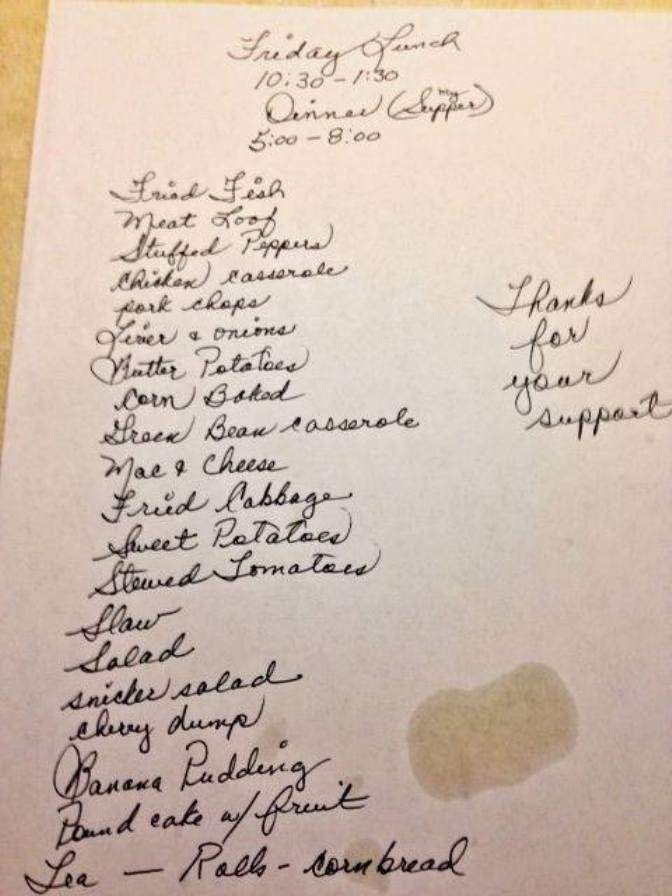 Friday Lunch
10:30 - 1:30
Dinner (my Supper)
5:00 - 8:00
Fried Fish
Meat Loof
Stuffed Peppers
chicken casserole
pork chops
Liver & onions
Butter Potatoes
corn Baked
Green Bean casserole
Mac & Cheese
Fried Cabbage
Sweet Potatoes
Stewed Tomatoes
Slaw
Salad
snicker salad
cherry dump
Banana Pudding
Pound cake w/ fruit
Tea — Rolls - cornbread
Thanks
for
your
support